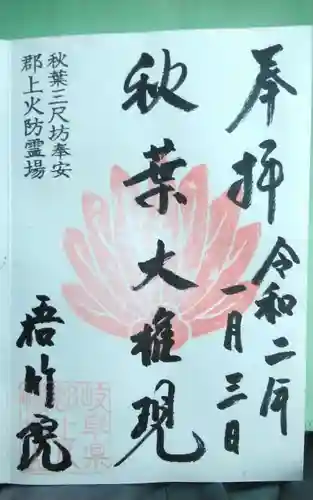 奉拝
令和二年
一月三日
秋葉大権現
秋葉三尺坊奉安
郡上火防霊場
悟竹院
岐阜県
郡上